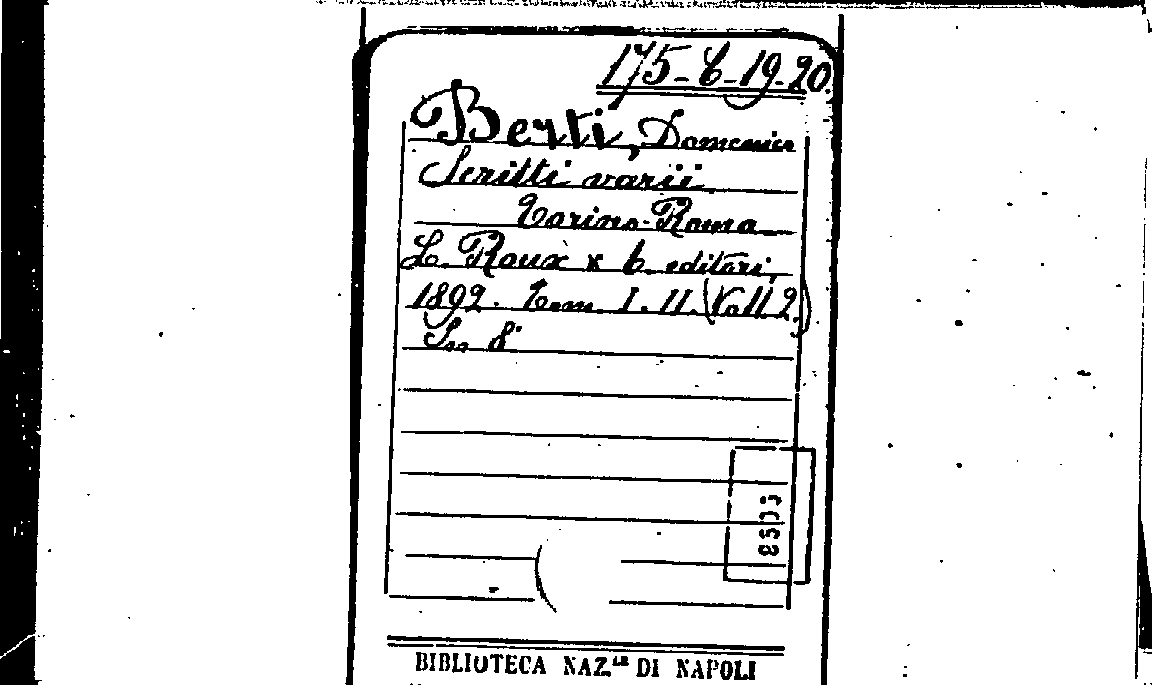 175-C-19-20.
Berti, Domenico
Scritti varii.
Torino-Roma
L. Roux x C. editori,
1892. Tom. I. II. (Voll 2.)
In 8°
BIBLIOTECA NAZ.LE DI NAPOLI